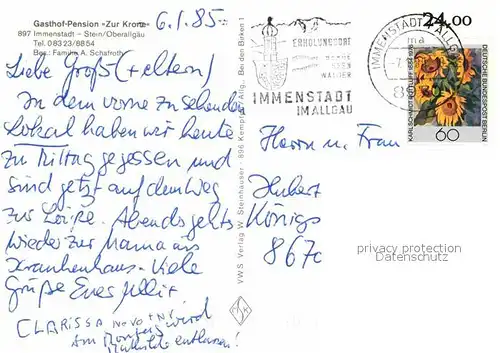 Gasthof-Pension »Zur Krone«
897 Immenstadt - Stein/Oberallgäu
Tel. 08323/8854
Bes.: Familie A. Schafroth
6.1.85
Liebe Groß(+eltern)
In dem vorne zu sehenden
Lokal haben wir heute
zu Mittag gegessen und
sind jetzt auf dem Weg
zur . Abends gehts
wieder zur Mama ins
Krankenhaus. Viele
Grüße Eure
CLARISSA
Am Montag wird
Mathilde entlassen!
VWS Verlag W. Steinhauser · 896 Kempten Allg., Bei den Birken 1
ERHOLUNGSORT
BERGE
SEEN
WÄLDER
IMMENSTADT
IM ALLGÄU
IMMENSTADT ALLG
ma
24.00
DEUTSCHE BUNDESPOST BERLIN
60
Herrn u. Frau
Hubert
Königs
867
privacy protection
Datenschutz